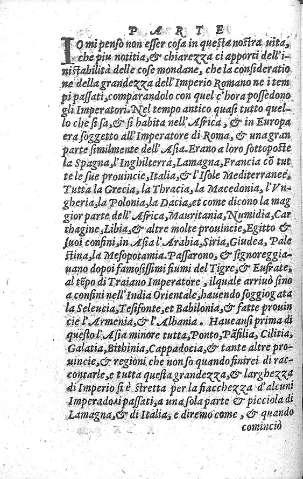 PARTE
IO mi penso non esser cosa in questa nostra uita,
che piu notitia, & chiarezza ci apporti dell'i-
nistabilità delle cose mondane, che la consideratio
ne della grandezza dell'Imperio Romano ne i tem
pi passati, comparandolo con quel c'hora possedono
gli Imperatori. Nel tempo antico quasi tutto quel-
lo che si sa, & si habita nell'Africa, & in Europa
era soggetto all'Imperatore di Roma, & una gran
parte similmente dell'Asia. Erano a loro sottoposte
la Spagna, l'Inghilterra, Lamagna, Francia cõ tut
te le sue prouincie, Italia, & l'Isole Mediterranee.
Tutta la Grecia, la Thracia, la Macedonia, l'Vn-
gheria, la Polonia, la Dacia, et come dicono la mag
gior parte dell'Africa, Mauritania, Numidia, Car
thagine, Libia, & altre molte prouincie, Egitto &
suoi confini, in Asia l'Arabia, Siria, Giudea, Pale
stina, la Mesopotamia. Passarono, & signoreggia-
uano dopoi famosissimi fiumi del Tigre, & Eufrate,
al tẽpo di Traiano Imperatore, ilquale arriuò sino
a confini nell'India Orientale, hauendo soggiogata
la Seleucia, Tesifonte, et Babilonia, & fatte prouin
cie l'Armenia, & l'Albania. Haueansi prima di
questo l'Asia minore tutta, Ponto, Pãfilia, Cilitia,
Galatia, Bithinia, Cappadocia, & tante altre pro-
uincie, & regioni che non so quando finirei di rac-
contarle, e tutta questa grandezza, & larghezza
di Imperio si è stretta per la fiacchezza d'alcuni
Imperadori passati, a una sola parte & picciola di
Lamagna, & di Italia, e diremo come, & quando
cominciò